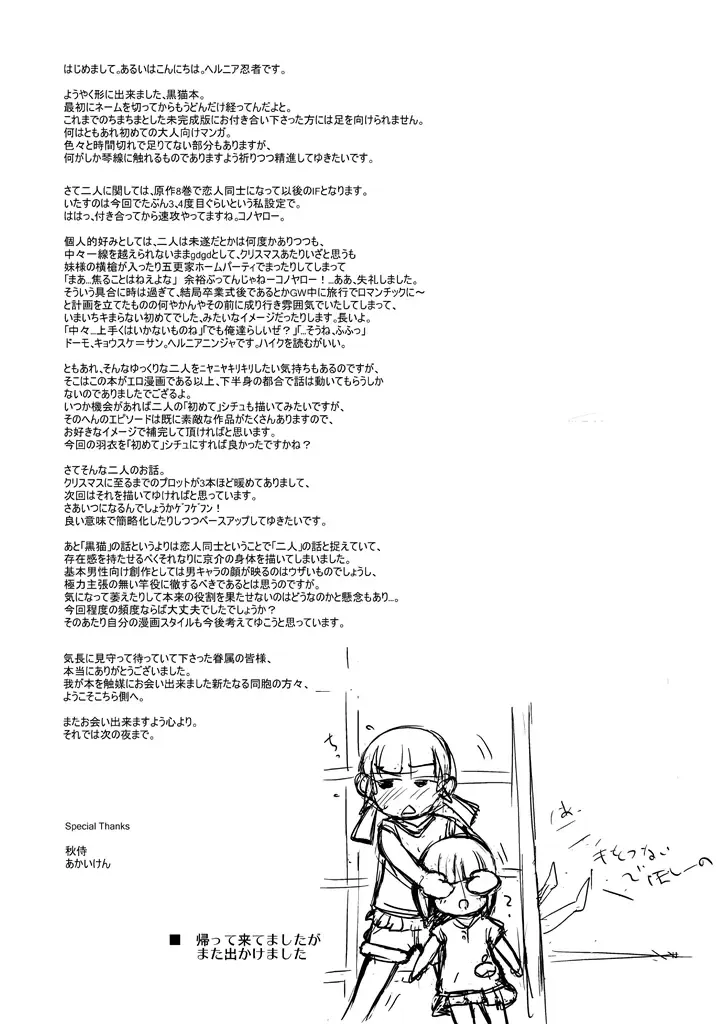 はじめまして。あるいはこんにちは。ヘルニア忍者です。
ようやく形に出来ました、黒猫本。
最初にネームを切ってからもうどんだけ経ってんだよと。
これまでのちまちまとした未完成版にお付き合い下さった方には足を向けられません。
何はともあれ初めての大人向けマンガ。
色々と時間切れで足りてない部分もありますが、
何がしか琴線に触れるものでありますよう祈りつつ精進してゆきたいです。
さて二人に関しては、原作8巻で恋人同士になって以後のIFとなります。
いたすのは今回でたぶん3、4度目ぐらいという私設定で。
ははっ、付き合ってから速攻やってますね。コノヤロー。
個人的好みとしては、二人は未遂だとかは何度かありつつも、
中々一線を越えられないままgdgdとして、クリスマスあたりいざと思うも
妹様の横槍が入ったり五更家ホームパーティでまったりしてしまって
「まあ…焦ることはねえよな」 余裕ぶってんじゃねーコノヤロー！…ああ、失礼しました。
そういう具合に時は過ぎて、結局卒業式後であるとかGW中に旅行でロマンチックに～
と計画を立てたものの何やかんやその前に成り行き雰囲気でいたしてしまって、
いまいちキまらない初めてでした、みたいなイメージだったりします。長いよ。
「中々…上手くはいかないものね」「でも俺達らしいぜ？」「…そうね、ふふっ」
ドーモ、キョウスケ＝サン。ヘルニアニンジャです。ハイクを読むがいい。
ともあれ、そんなゆっくりな二人をﾆﾔﾆﾔｷﾘｷﾘしたい気持ちもあるのですが、
そこはこの本がエロ漫画である以上、下半身の都合で話は動いてもらうしか
ないのでありましたでござるよ。
いつか機会があれば二人の「初めて」シチュも描いてみたいですが、
そのへんのエピソードは既に素敵な作品がたくさんありますので、
お好きなイメージで補完して頂ければと思います。
今回の羽衣を「初めて」シチュにすれば良かったですかね？
さてそんな二人のお話。
クリスマスに至るまでのプロットが3本ほど暖めてありまして、
次回はそれを描いてゆければと思っています。
さあいつになるんでしょうかｹﾞﾌｹﾞﾌﾝ！
良い意味で簡略化したりしつつペースアップしてゆきたいです。
あと「黒猫」の話というよりは恋人同士ということで「二人」の話と捉えていて、
存在感を持たせるべくそれなりに京介の身体を描いてしまいました。
基本男性向け創作としては男キャラの顔が映るのはウザいものでしょうし、
極力主張の無い竿役に徹するべきであるとは思うのですが。
気になって萎えたりして本来の役割を果たせないのはどうなのかと懸念もあり…。
今回程度の頻度ならば大丈夫でしたでしょうか？
そのあたり自分の漫画スタイルも今後考えてゆこうと思っています。
気長に見守って待っていて下さった眷属の皆様、
本当にありがとうございました。
我が本を触媒にお会い出来ました新たなる同胞の方々、
ようこそこちら側へ。
またお会い出来ますよう心より。
それでは次の夜まで。
Special Thanks
秋侍
あかいけん
■ 帰って来てましたが
また出かけました
ちっ
?
きをつない
でほしーの